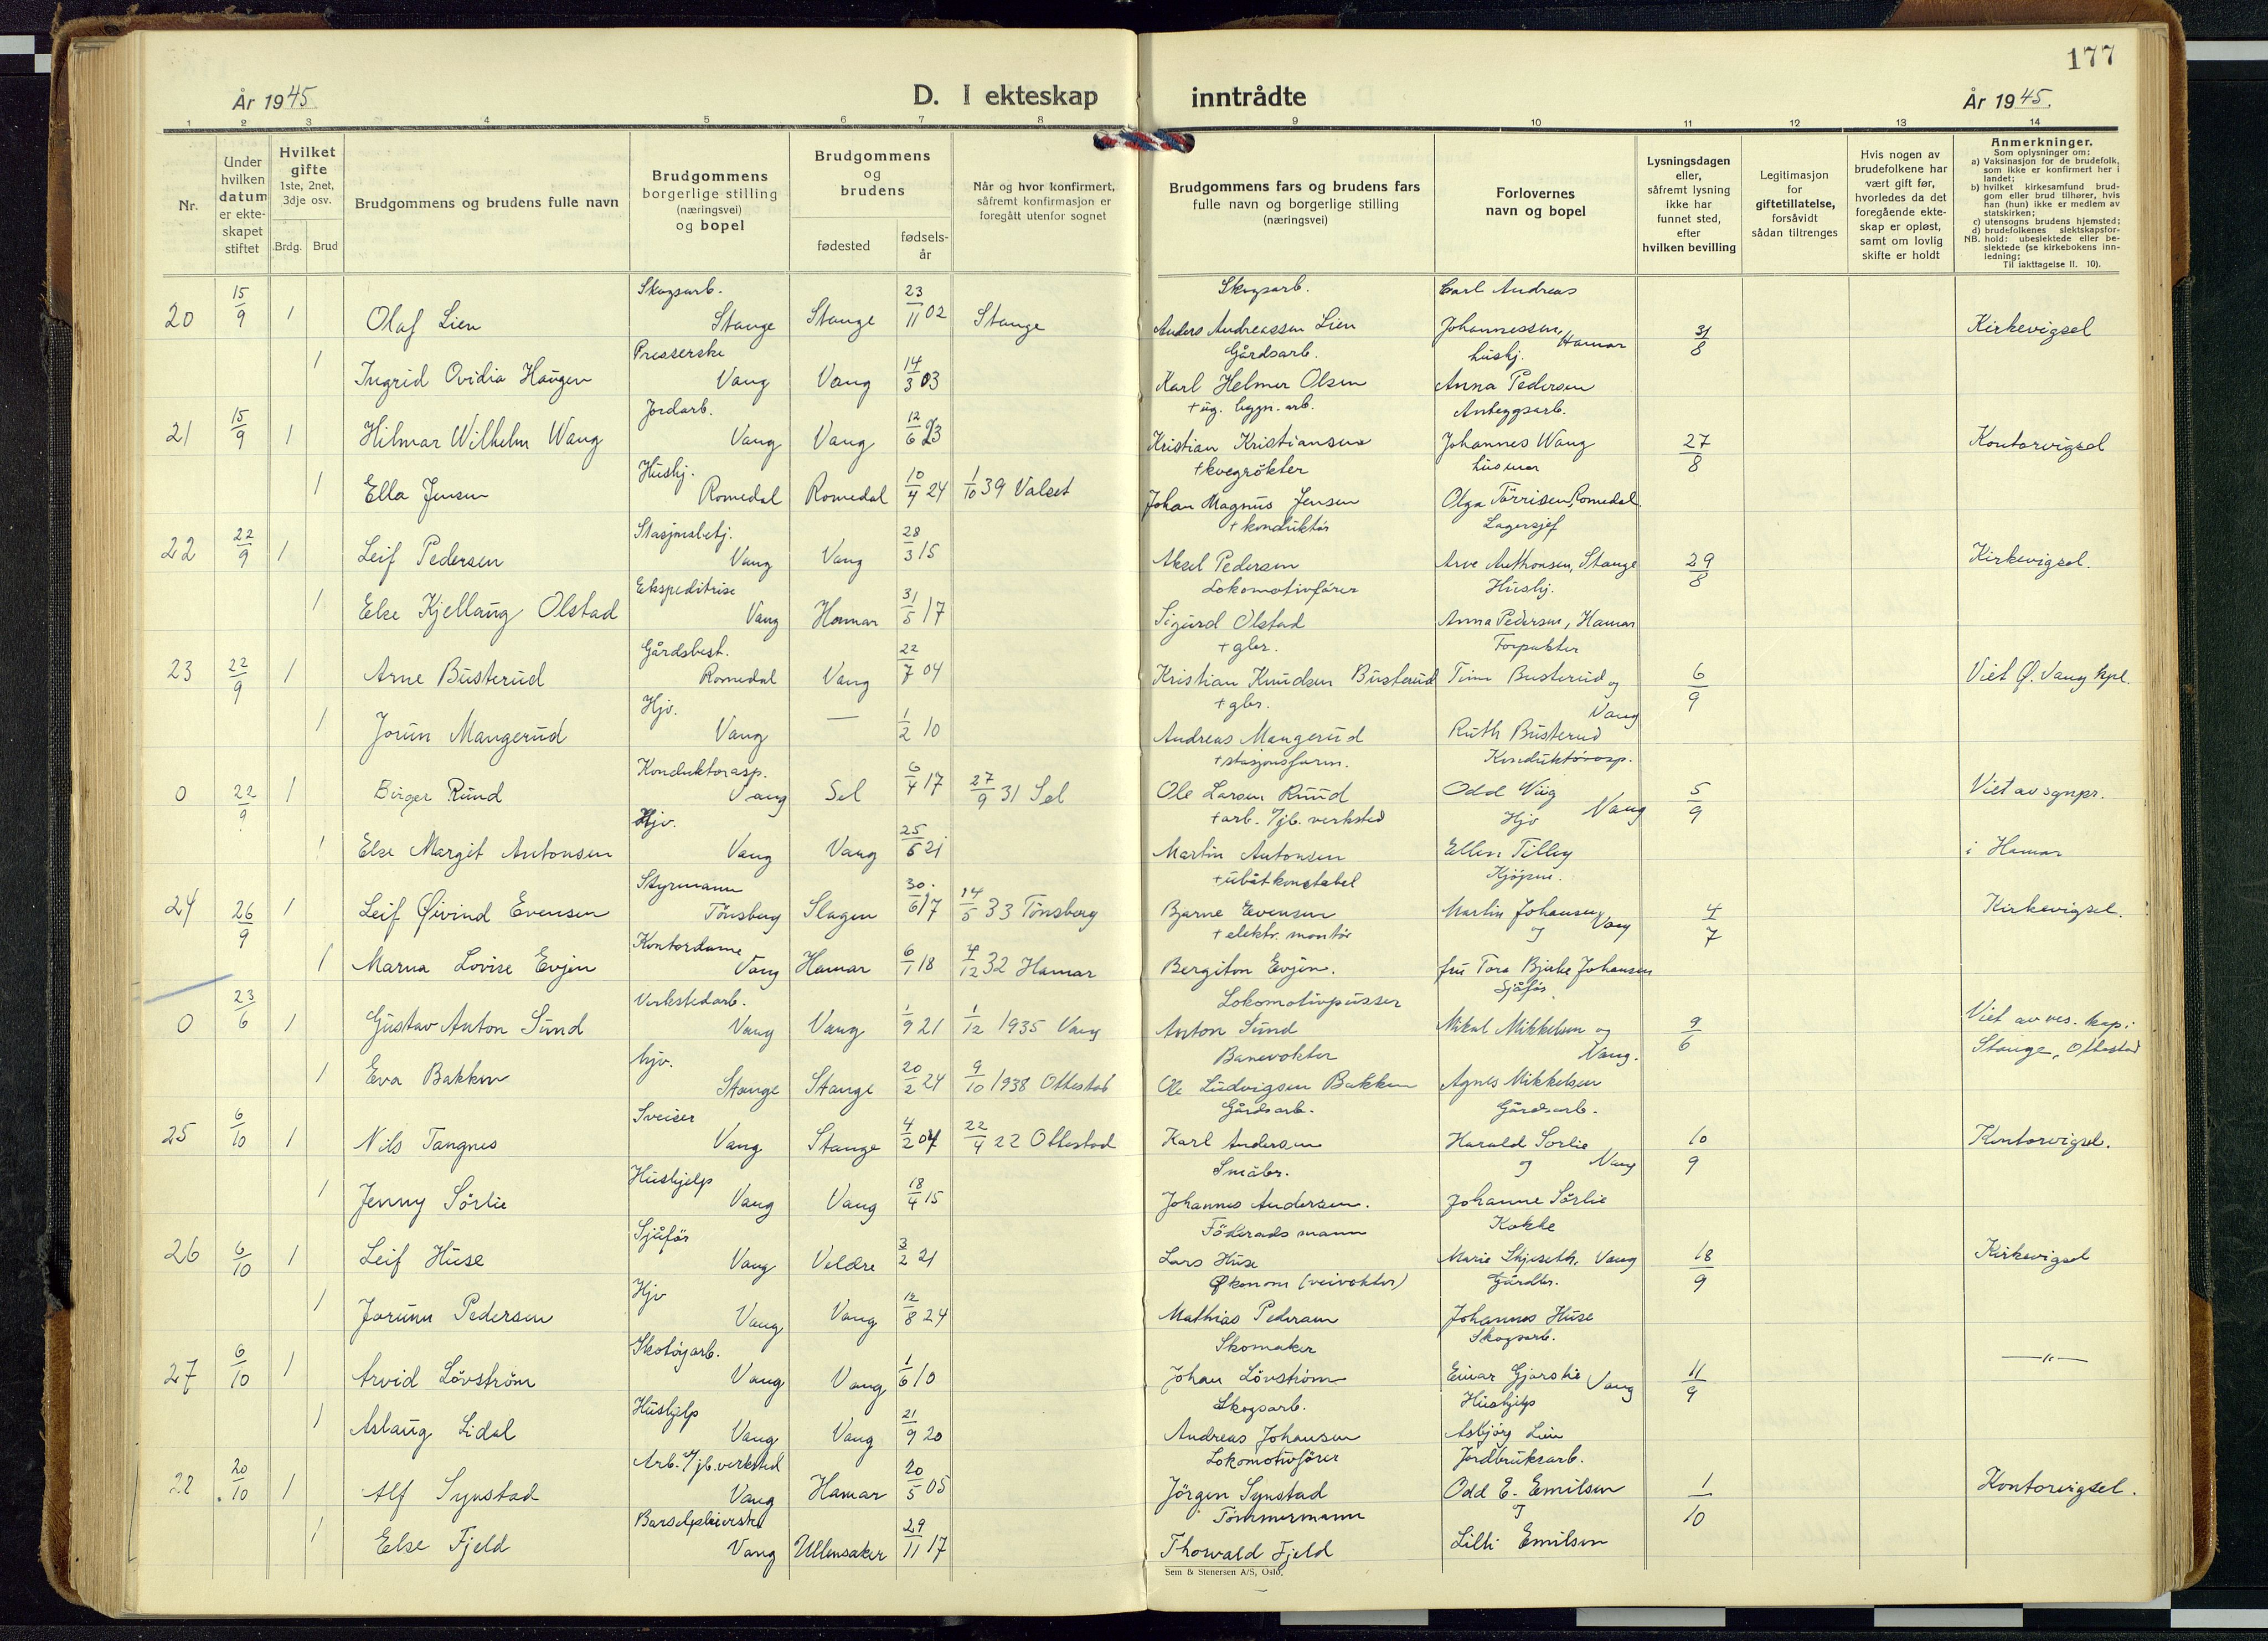 177
År 1945
D. I ekteskap inntrådte
År 1945.
1 2 3 4 5 6 7 8 9 10 11 12 13 14
Nr.
Under hvilken datum er ekte-skapet stiftet
Hvilket gifte 1ste, 2net, 3dje osv.
Brdg. Brud
Brudgommens og brudens fulle navn
Brudgommens borgerlige stilling (næringsvei) og bopel
Brudgommens og brudens
fødested
fødsels-år
Når og hvor konfirmert, såfremt konfirmasjon er foregått utenfor sognet
Brudgommens fars og brudens fars fulle navn og borgerlige stilling (næringsvei)
Forlovernes navn og bopel
Lysningsdagen eller, såfremt lysning ikke har funnet sted, efter hvilken bevilling
Legitimasjon for giftetillatelse, forsåvidt sådan tiltrenges
Hvis nogen av brudefolkene har vært gift før, hvorledes da det foregående ekte-skap er opløst, samt om lovlig skifte er holdt
Anmerkninger.
Som oplysninger om:
a) Vaksinasjon for de brudefolk, som ikke er konfirmert her i landet;
b) hvilket kirkesamfund brud-gom eller brud tilhører, hvis han (hun) ikke er medlem av statskirken;
c) utensogns brudens hjemsted;
d) brudefolkenes slektskapsfor-hold: ubeslektede eller be-slektede (se kirkebokens inn-ledning;
NB. Til iakttagelse II. 10).
Skogsarb. 23 Skogsarb. Carl Andreas
20 15/9 1 Olaf Lien Stange Stange 11 02 Stange Anders Andreassen Lien Johannessen, Hamar 31/8 Kirkevigsel
Presserske Gårdsarb. hushj.
1 Ingrid Ovidia Haugen Vang Vang 14/3 03 Karl Helmer Olsen Anna Pedersen
Jordarb. + ug. bygn. arb. Anleggsarb.
21 15/9 1 Hilmar Wilhelm Wang Vang Vang 12/6 23 Kristian Kristiansen Johannes Wang 27/8 Kontorvigsel
Hushj. + kvegrøkter husmor
1 Ella Jensen Romedal Romedal 10/4 24 1/10 39 Valset Johan Magnus Jensen Olga Tørrisen, Romedal
Stasjonsbetj. + konduktør Lagersjef
22 22/9 1 Leif Pedersen Vang Vang 28/3 15 Aksel Pedersen Arve Anthonsen, Stange 29/8 Kirkevigsel.
Ekspeditrise Lokomotivfører Hushj.
1 Else Kjellaug Olstad Vang Hamar 31/5 17 Sigurd Olstad Anna Pedersen, Hamar
Gårdsbest. + gbr. Forpakter
23 22/9 1 Arne Busterud Romedal Vang 22/7 04 Kristian Knudsen Busterud Timn Busterud og 6/9 Viet Ø. Vang kpl.
Hjv. + gbr. Vang
1 Jorun Mangerud Vang — 1/2 10 Andreas Mangerud Ruth Busterud
Konduktørasp. + stasjonsform. Konduktørasp.
0 22/9 1 Birger Ruud Vang Sel 6/4 17 27/9 31 Sel Ole Larsen Ruud Odd Wiig Vang 5/9 Viet av sgnpr.
Hjv. + arb. v/jb. verksted Hjv
1 Else Margit Antonsen Vang Vang 25/5 21 Martin Antonsen Ellen Tilley i Hamar
Styrmann + ubåtkonstabel Kjøpm.
24 26/9 1 Leif Øivind Evensen Tønsberg Slagen 30/6 17 14/5 33 Tønsberg Bjarne Evensen Martin Johansen og Vang 4/7 Kirkevigsel.
Kontordame + elektr. montør
1 Marna Lovise Evjen Vang Hamar 6/1 18 4/12 32 Hamar Bergiton Evjen. fru Tora Bjerke Johansen
Verkstedarb. Lokomotivpusser Sjåfør
0 23/6 1 Gustav Anton Sund Vang Vang 1/9 21 1/12 1935 Vang Anton Sund Mikal Mikkelsen og Vang. 9/6 Viet av res. kap. i
hjv. Banevokter Stange, Ottestad
1 Eva Bakken Stange Stange 20/2 24 9/10 1938 Ottestad Ole Ludvigsen Bakken Agnes Mikkelsen
Sveiser Gårdsarb. Gårdsarb.
25 6/10 1 Nils Tangnes Vang Stange 4/2 07 22/4 22 Ottestad Karl Andersen Harald Sørlie og Vang 10/9 Kontorvigsel.
Hushjelp Småbr.
1 Jenny Sørlie Vang Vang 18/4 15 Johannes Andersen. Johanne Sørlie
Sjåfør Føderadsmann Kokke
26 6/10 1 Leif Huse Vang Veldre 3/2 21 Lars Huse Marie Skjeseth, Vang 18/9 Kirkevigsel
Hjv Økonom (veivokter) Gårdbr.
1 Jorunn Pedersen Vang Vang 12/8 24 Mathias Pedersen Johannes Huse
Skotøyarb. Skomaker Skogsarb.
27 6/10 1 Arvid Lövström Vang Vang 1/6 10 Johan Lövström Einar Gjørslie Vang 11/9 —"—
Hushjelp Skogsarb. Hushjelp
1 Aslaug Lidal Vang Vang 21/9 20 Andreas Johansen Asbjørg Lien
Arb. v/jb. verksted Lokomotivfører Jordbruksarb.
22 20/10 1 Alf Synstad Vang Hamar 20/5 05 Jörgen Synstad Odd E. Emilsen og 1/10 Kontorvigsel.
Barselpleierske Tömmermann
1 Else Fjeld Vang Ullensaker 29/11 17 Thorvald Fjeld Lilli Emilsen
Sem & Stenersen A/S, Oslo.